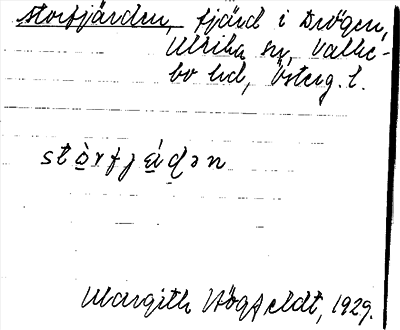 Storfjärden, fjärd i Drögen,
Ulrika sn, Valke-
bo hd, Österg. l.
stòrfjǽdən
Margith Högfeldt, 1929.